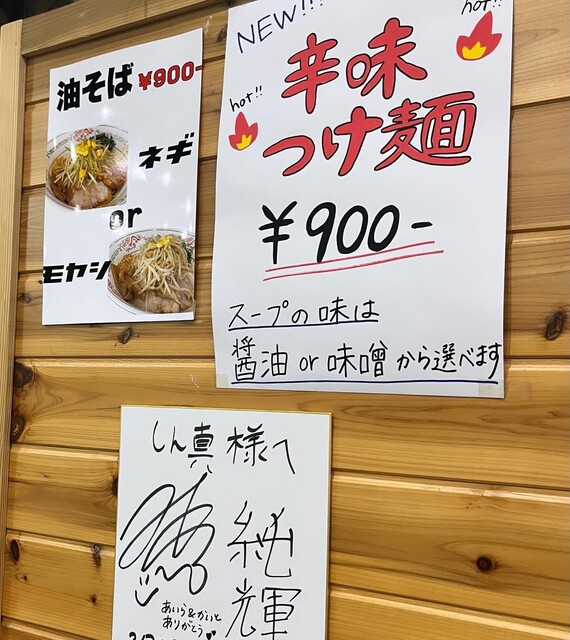 油そば ¥900-
ネギ
or
モヤシ
NEW!!!
hot!!
辛味
hot!!
つけ麺
¥900-
スープの味は
醤油 or 味噌 から選べます
しん真 様へ
純輝
あいら&かいと
ありがとう